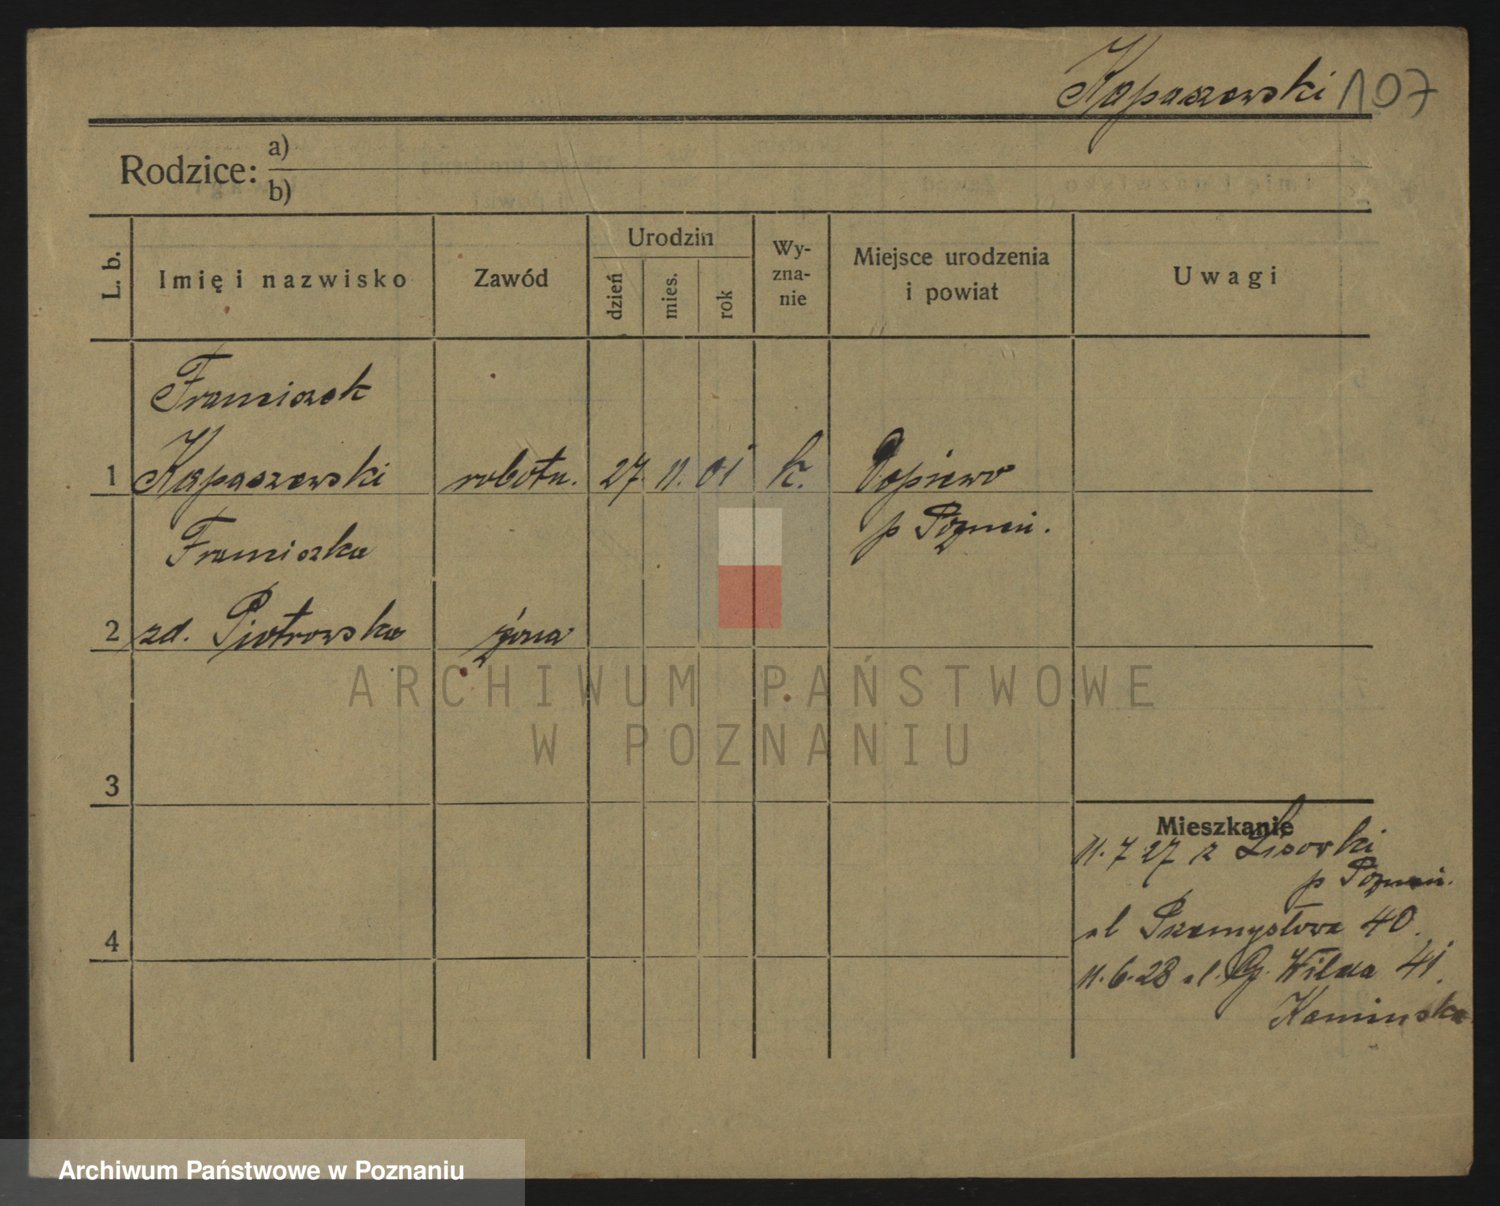 Kapaszewski 107
Rodzice: a)
b)
L. b.
Imię i nazwisko
Zawód
Urodzin
dzień
mies.
rok
Wy-
zna-
nie
Miejsce urodzenia
i powiat
Uwagi
Franciszek
1 Kapaszewski robotn. 27 11. 01 k. Dopiewo
p Poznań.
Franciszka
2 zd. Piotrowska żona
ARCHIWUM PAŃSTWOWE
W POZNANIU
3
Mieszkanie
11.7 27 z Lisowki
p Poznań.
ul Przemysłowa 40.
4
11.6.28 ul. G. Wilda 41.
Kaminska
Archiwum Państwowe w Poznaniu